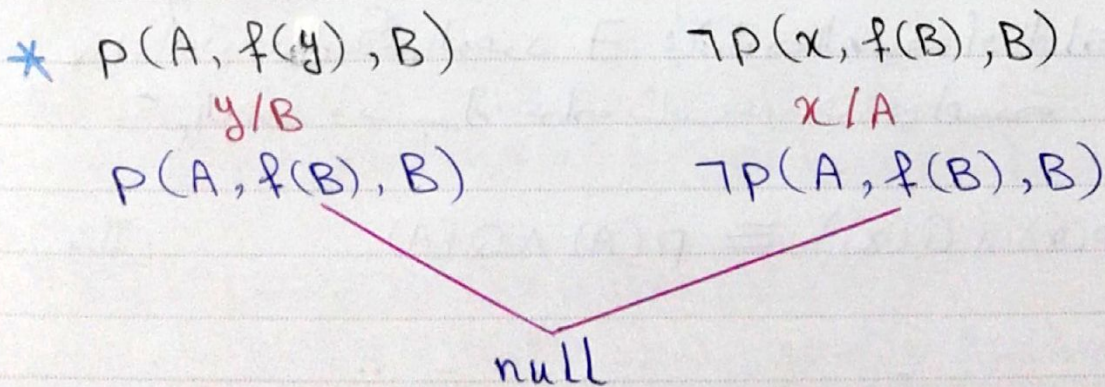 * p(A, f(y), B) ¬p(x, f(B), B)
y/B x/A
p(A, f(B), B) ¬p(A, f(B), B)
null